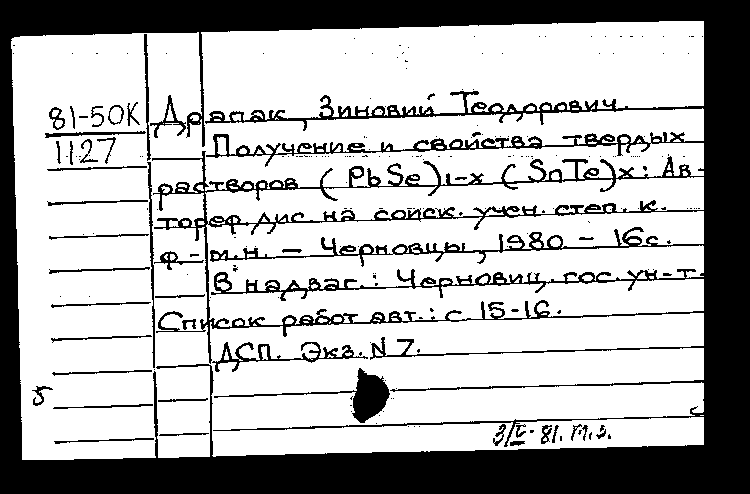 81-50К Драпак, Зиновий Теодорович.
1127 Получение и свойства твердых
растворов (PbSe)1-x (SnTe)x: Ав-
тореф. дис. на соиск. учен. степ. к.
ф.-м.н. – Черновцы, 1980 – 16с.
В надзаг.: Черновиц. гос. ун-т.
Список работ авт.: с. 15-16.
ДСП. Экз. N 7.
5
81. т.з.